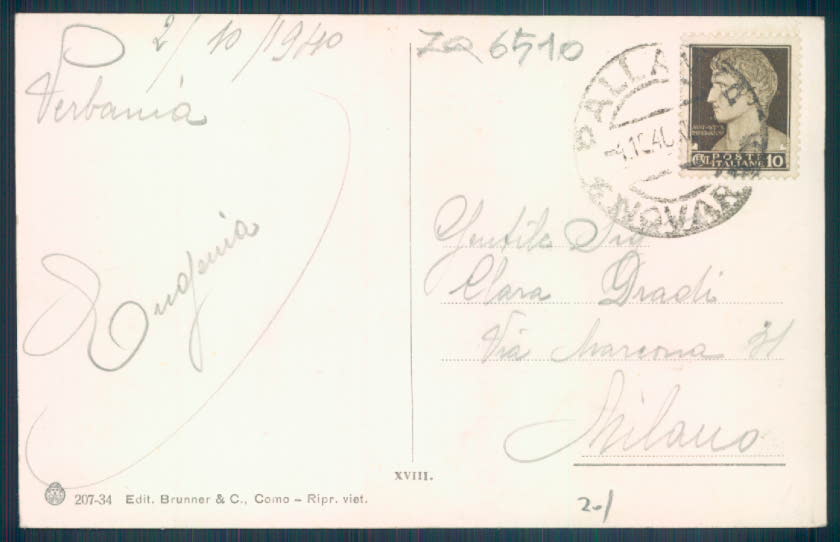 2/10/1940
Verbania
Eugenia
ZQ 6510
PALLANZA
4.10.40
NOVARA
POSTE
ITALIANE 10
Gentile Sig
Clara Dradi
Via Marcona 31
Milano
XVIII.
207-34 Edit. Brunner & C., Como – Ripr. viet.
20/